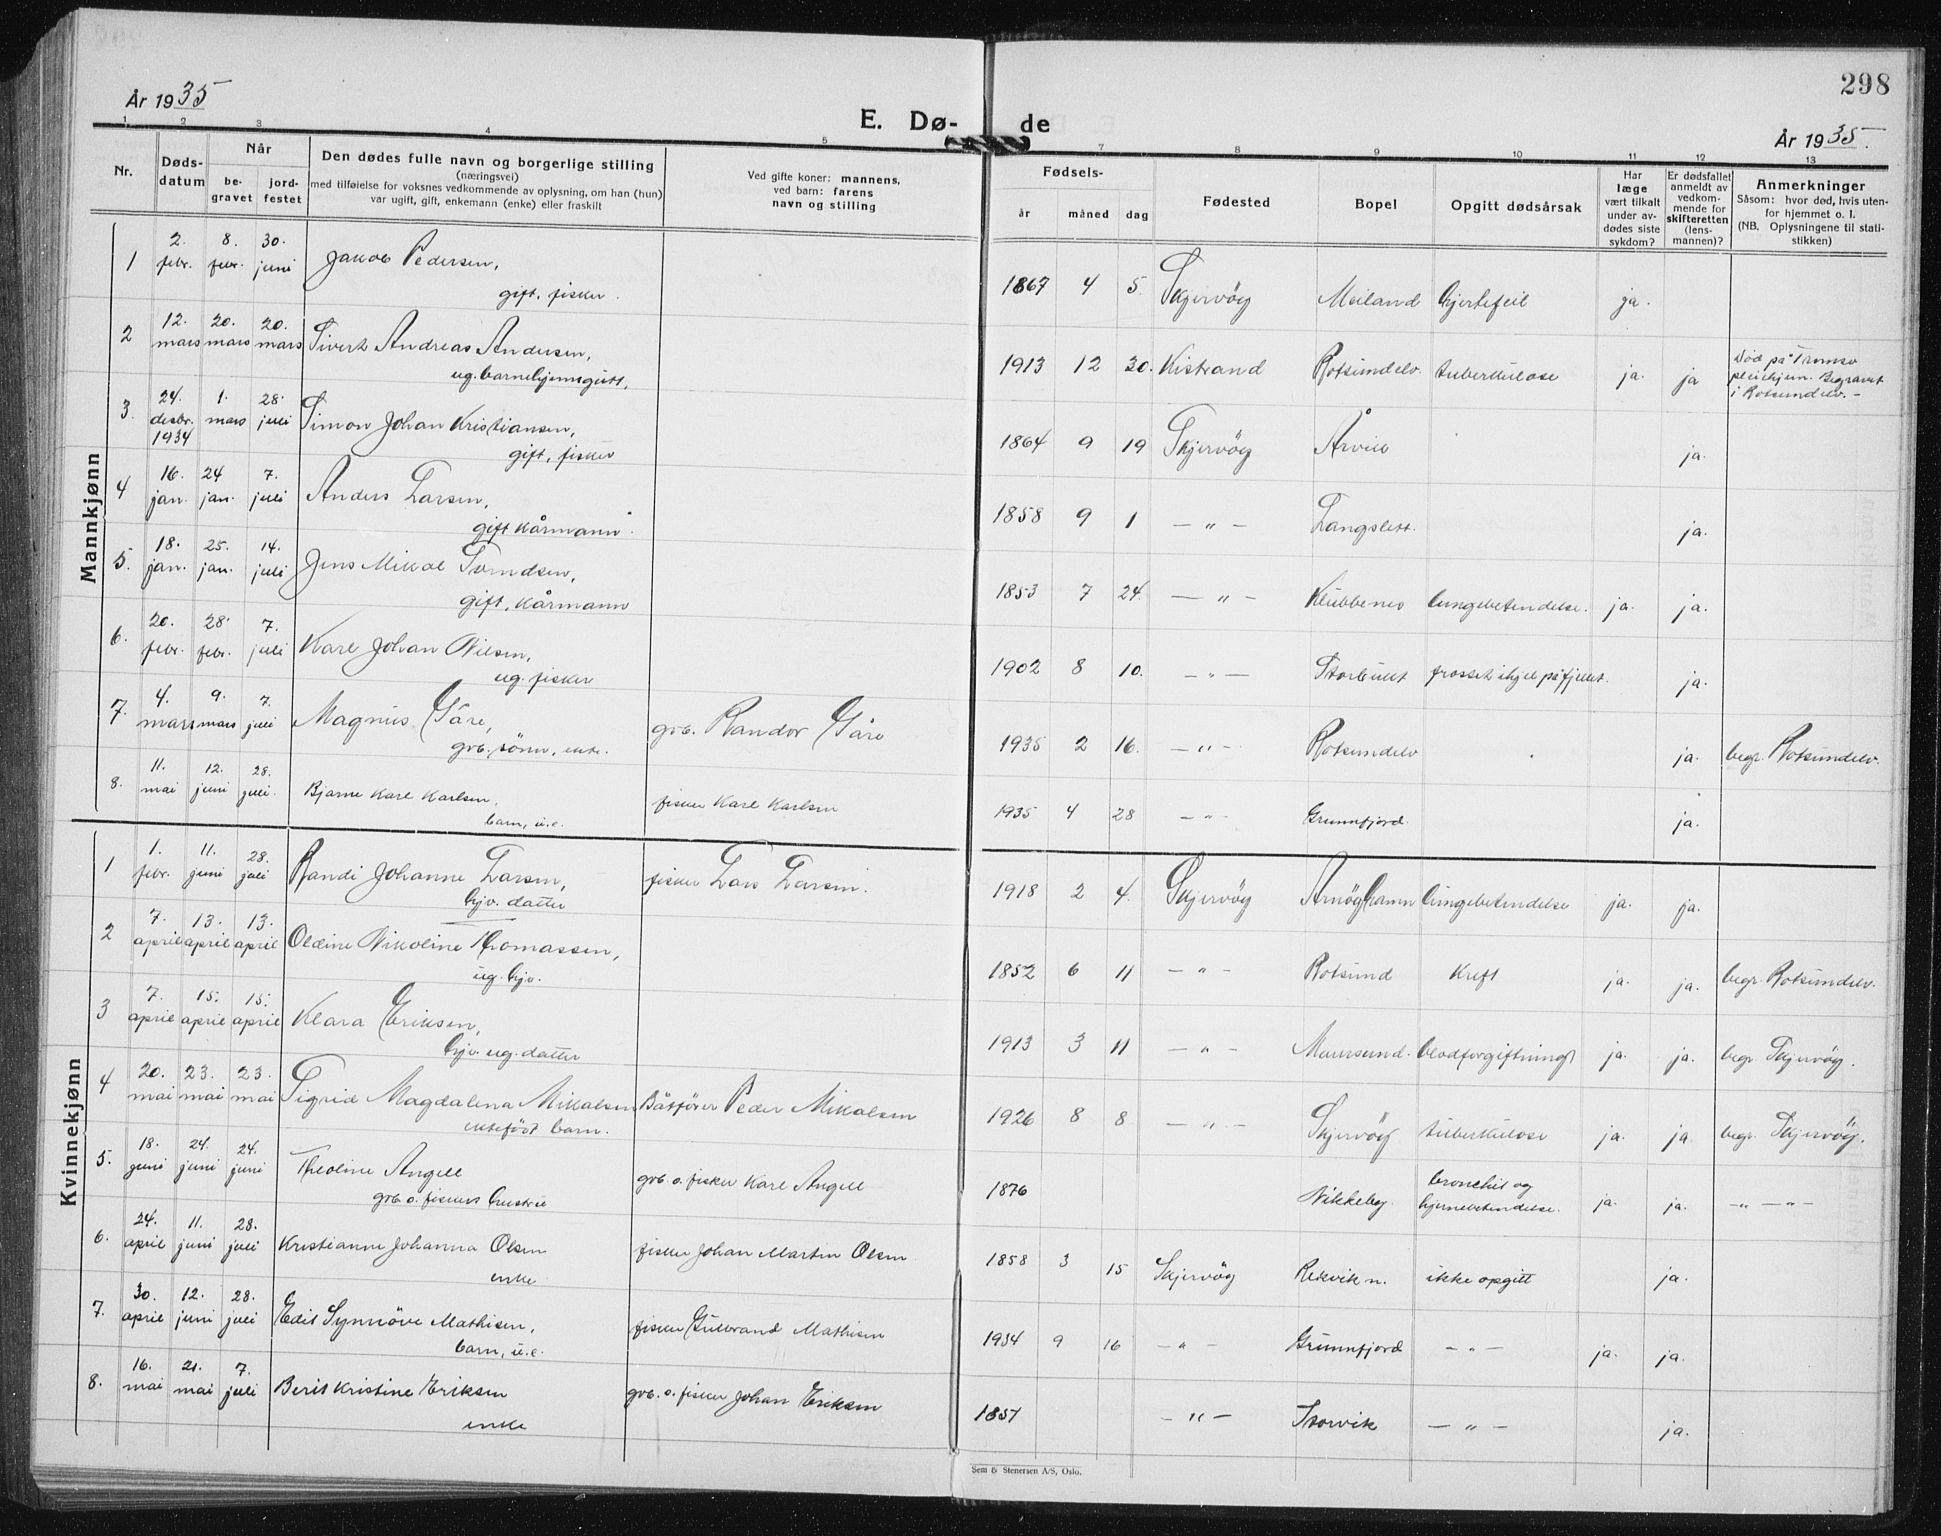 298
År 1935
E. Dø- de
År 1935.
1 2 3 4 5 7 8 9 10 11 12 13
Nr. Døds-datum Når be-gravet jord-festet Den dødes fulle navn og borgerlige stilling (næringsvei) med tilføielse for voksnes vedkommende av oplysning, om han (hun) var ugift, gift, enkemann (enke) eller fraskilt Ved gifte koner: mannens, ved barn: farens navn og stilling Fødsels- år måned dag Fødested Bopel Opgitt dødsårsak Har læge vært tilkalt under av-dødes siste sykdom? Er dødsfallet anmeldt av vedkom-mende for skifteretten (lens-mannen)? Anmerkninger Såsom: hvor død, hvis uten-for hjemmet o. l. (NB. Oplysningene til stati-stikken)
Mannkjønn
1 2. febr. 8. febr. 30. juni Jakob Pedersen, gift, fisker. 1867 4 5. Skjervöy Meiland hjertefeil ja.
2 12. mars 20. mars 20. mars Sivert Andreas Andersen, ug. barnehjemsgutt, 1913 12 30. Kistrand Rotsundelv. tuberkulose ja. ja Død på Tromsø pleiehjem. Begravet i Rotsundelv. -
3. 24. desbr. 1934 1. mars 28. juli Simon Johan Kristiansen, gift, fisker 1864 9 19 Skjervöy Årvik ja.
4 16. jan. 24 jan. 7. juli Anders Larsen, gift kårmann. 1858 9 1 — " — Langslett. ja.
5. 18. jan. 25. jan. 14. juli Jens Mikal Tomdsen, gift, kårmann 1853 7 24. — " — Klubbenes lungebetendelse. ja. ja.
6. 20. febr. 28. febr. 7. juli Karl Johan Nilsen, ug. fisker 1902 8 10. — " — Storbukt frosset ihjel på fjellet. ja.
7. 4. mars 9. mars 7. juli Magnus Gåre, grb. sønn, ekte. grb. Randor Gåre 1935 2 16. — " — Rotsundelv ja. begr. Rotsundelv.
8. 11. mai 12. juni 28. juli. Bjarne Karl Karlsen, barn, u.e. fisker Karl Karlsen 1935 4 28 — " — Grunnfjord. ja.
Kvinnekjønn
1 1. febr. 11. juni 28. juli Randi Johanne Larsen, hjv. datter fisker Lars Larsen. 1918 2 4. Skjervöy Arnöyhamn lungebetendelse ja. ja.
2 7. april 13. april 13. april Oldine Nikoline Thomassen, ug. hjv. 1852 6 11 — " — Rotsund kreft ja. ja. begr. Rotsundelv.
3 7. april 15. april 15. april Klara Eriksen, hjv. ug. datter 1913 3 11 — " — Maursund. blodforgiftning ja. ja. begr. Skjervöy.
4 20. mai 23. mai 23. mai Sigrid Magdalena Mikalsen ektefødt barn. Båtfører Peder Mikalsen 1926 8 8 — " — Skjervöy tuberkulose ja. ja. begr. Skjervöy.
5. 18. juni 24. juni 24. juni Theoline Angell grb. o. fiskers hustru grb. o. fisker Karl Angell 1876 Nikkeby. bronchit og hjernebetendelse. ja. ja. — " — " —
6. 24. april 11. juni 28. juli Kristianne Johanna Olsen enke. fisker Johan Martin Olsen 1858 3 15 Skjervöy Reikvik n. ikke opgitt ja.
7. 30. april 12. juni 28. juli Edit Synnöve Mathisen, barn, u.e. fisker Gulbrand Mathisen 1934 9 16 — " — Grunnfjord — " — ja. ja.
8. 16. mai 21. mai 7. juli Berit Kristine Eriksen enke grb. o. fisker Johan Eriksen 1851 — " — Storvik — " — ja.
Sem & Stenersen A/S, Oslo.